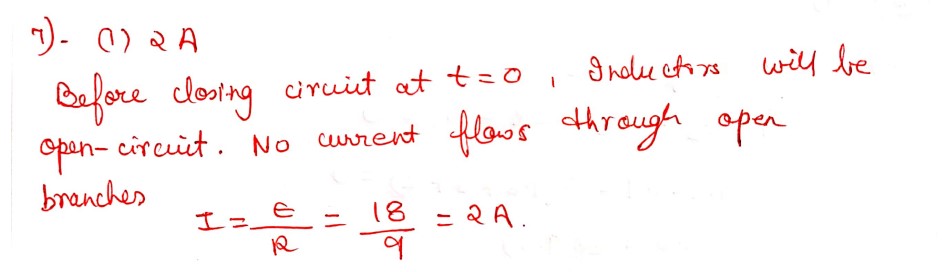 7)- (1) 2 A
Before closing circuit at t = 0 , Inductors will be
open-circuit. No current flows through open
branches
I = ε/R = 18/9 = 2 A.